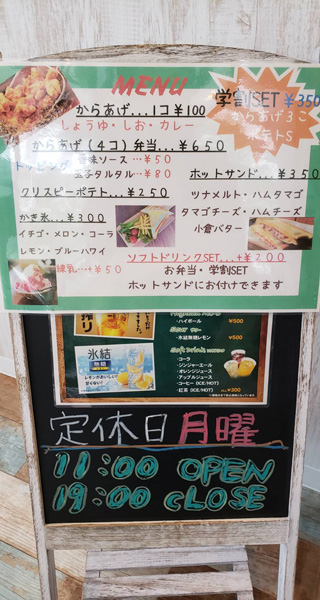 MENU
からあげ...1コ¥100
しょうゆ・しお・カレー
学割SET ¥350
からあげ3こ
ポテトS
からあげ(4コ)弁当...¥650
トッピング 香味ソース...¥50
玉子タルタル...¥80
クリスピーポテト...¥250
ホットサンド...¥350
ツナメルト・ハムタマゴ
タマゴチーズ・ハムチーズ
小倉バター
かき氷...¥300
イチゴ・メロン・コーラ
レモン・ブルーハワイ
練乳...+¥50
ソフトドリンクSET...+¥200
お弁当・学割SET
ホットサンドにお付けできます
搾り
・ハイボール ¥500
氷結
Sour
・氷結無糖レモン ¥500
Soft Drink
・コーラ
・ジンジャーエール
・オレンジジュース
・アップルジュース
・コーヒー (ICE/HOT)
・紅茶 (ICE/HOT) ¥300
定休日月曜
11:00 OPEN
19:00 CLOSE